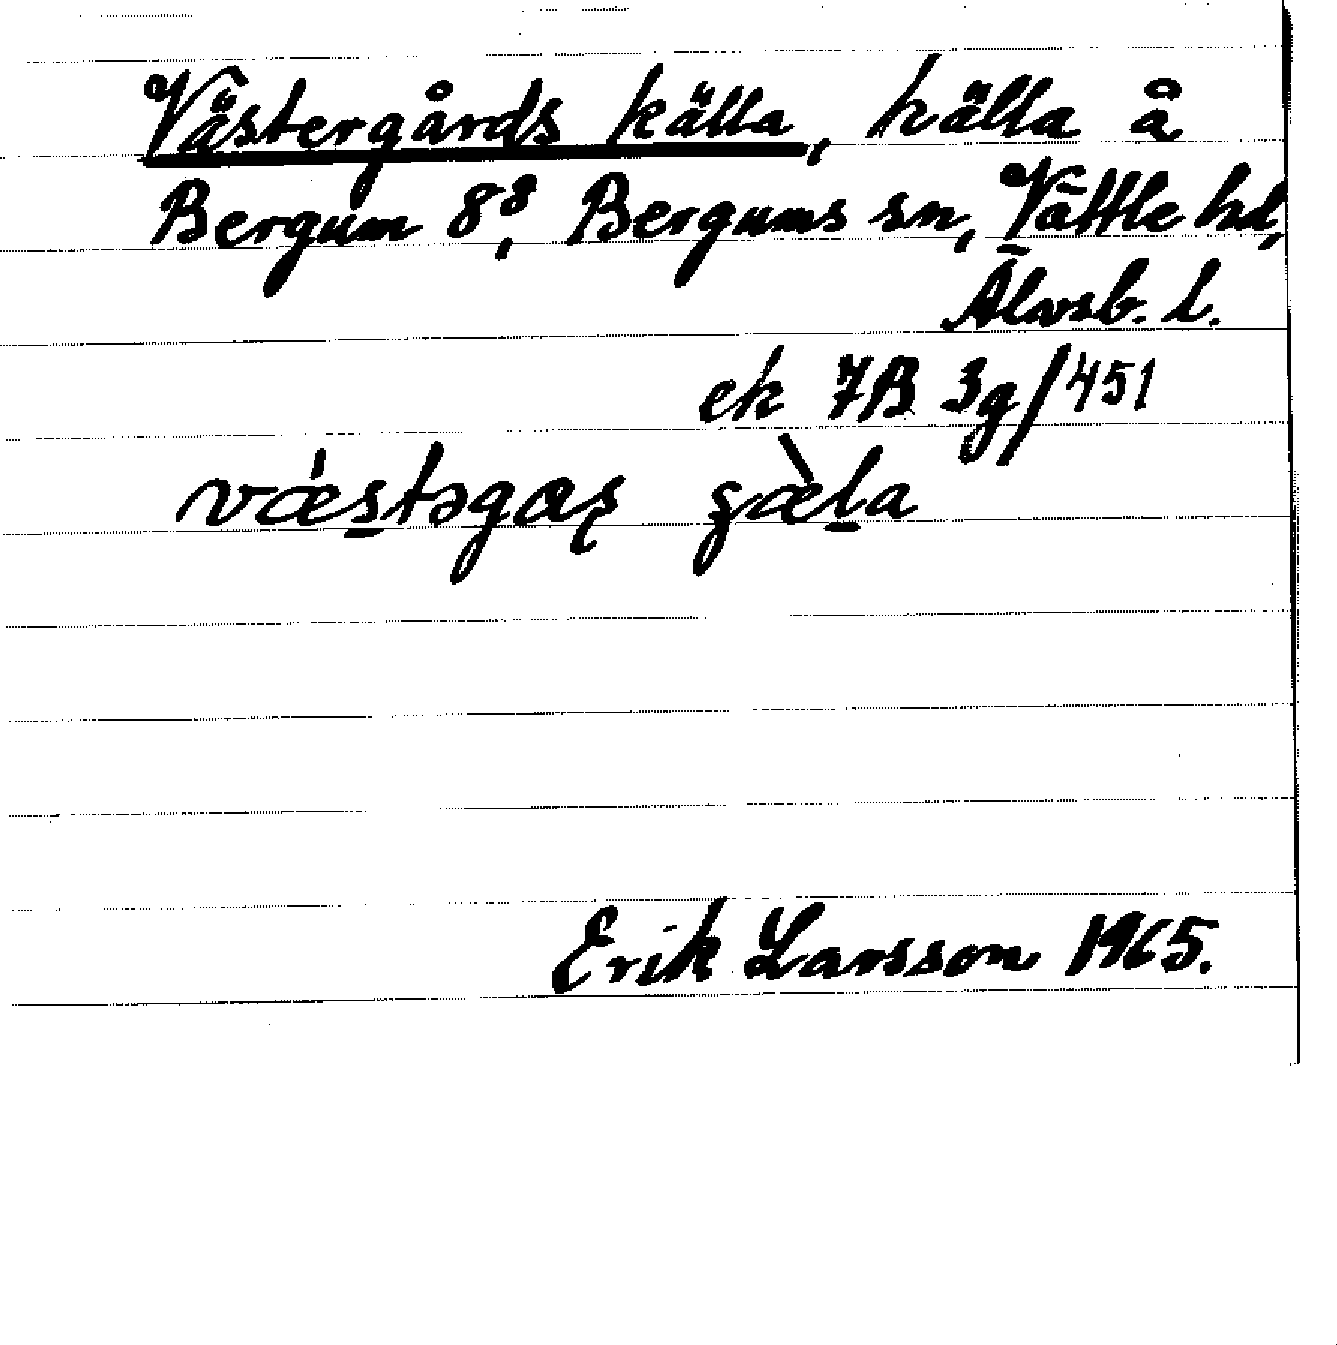 Västergårds källa, källa å
Bergum 8⁸, Bergums sn, Vättle hd,
Älvsb. l.
ek 7B 3g/451
vǽs̱təgɑʂ ʂæ̀ḻa
Erik Larsson 1965.